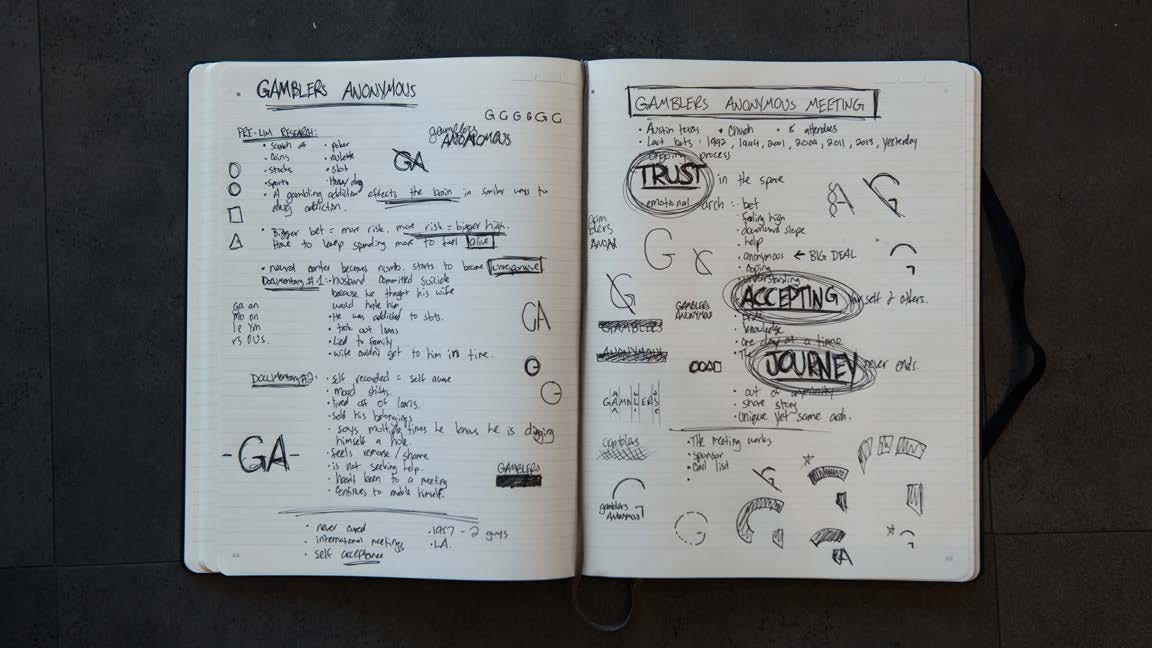 GAMBLERS ANONYMOUS
G G G G G G
gamblers
ANONOMOUS
GA
PRE-LIM RESEARCH:
• scratch off • poker
• coins • roulette
• stocks • slot
• sports
• A gambling addiction effects the brain in similar ways to
drug addiction.
• Bigger bet = more risk. more risk = bigger high.
have to keep spending more to feel alive
• neural center becomes numb. starts to become unresponsive
Documentary #1: • husband committed suicide
because he thought his wife
would hate him.
• He was addicted to slots.
• took out loans
• Lied to family
• wife couldn't get to him in time.
ga an
mb on
le ym
rs ous.
GA
Documentary #2: • self recorded = self aware
• mood shifts
• lived off of loans.
• sold his belongings
• says multiple times he knows he is digging
himself a hole.
• feels remorse / shame
• is not seeking help.
• hasn't been to a meeting
• continues to enable himself.
-GA-
GAMBLERS
• never cured • 1957 - 2 guys
• international meetings • LA.
• self acceptance
GAMBLERS ANONYMOUS MEETING
• Austin texas • Church • 8 attendees
• Last bets: 1992, 1994, 2001, 2009, 2011, 2013, yesterday
process
TRUST in the space
emotional arch: • bet
feeling high
• downward slope
• help
• anonymous ← BIG DEAL
• coping
• understanding
ACCEPTING self & others.
• pride
• knowledge
• one day at a time
• The JOURNEY never ends.
• out of
• share story
• unique yet same arch.
gam
blers
ANON
G
G
GAMBLERS
ANONYMOUS
GAMBLERS
ANONYMOUS
GAMBLERS
gamblers
gamblers
ANONYMOUS
• The meeting works
• sponsor
• Call list
•
GA
G
A